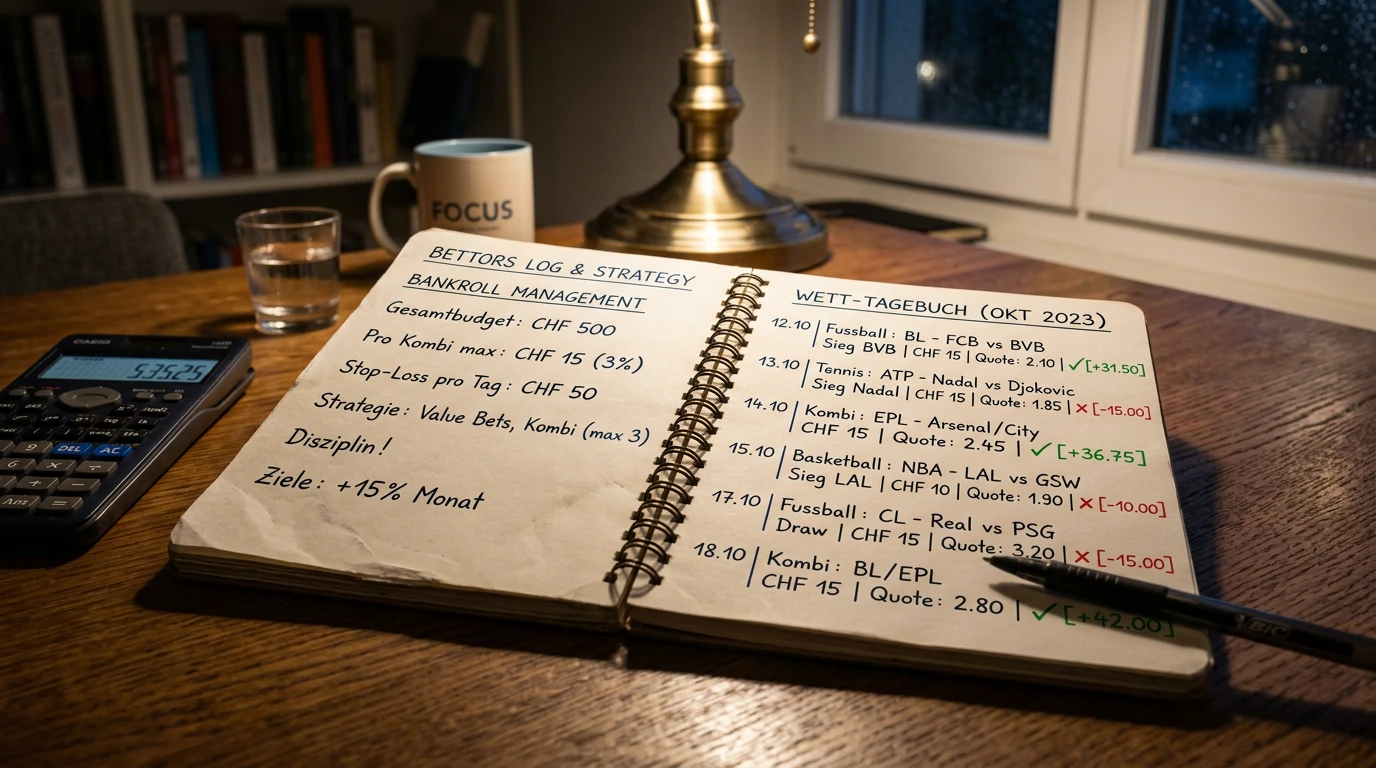 FOCUS
CASIO
53525
DEL
AC
BETTORS LOG & STRATEGY
BANKROLL MANAGEMENT
Gesamtbudget: CHF 500
Pro Kombi max: CHF 15 (3%)
Stop-Loss pro Tag: CHF 50
Strategie: Value Bets, Kombi (max 3)
Disziplin!
Ziele: +15% Monat
WETT-TAGEBUCH (OKT 2023)
12.10 | Fussball: BL - FCB vs BVB
Sieg BVB | CHF 15 | Quote: 2.10 | ✓ [+31.50]
13.10 | Tennis: ATP - Nadal vs Djokovic
Sieg Nadal | CHF 15 | Quote: 1.85 | ✗ [-15.00]
14.10 | Kombi: EPL - Arsenal/City
CHF 15 | Quote: 2.45 | ✓ [+36.75]
15.10 | Basketball: NBA - LAL vs GSW
Sieg LAL | CHF 10 | Quote: 1.90 | ✗ [-10.00]
17.10 | Fussball: CL - Real vs PSG
Draw | CHF 15 | Quote: 3.20 | ✗ [-15.00]
18.10 | Kombi: BL/EPL
CHF 15 | Quote: 2.80 | ✓ [+42.00]
BIC